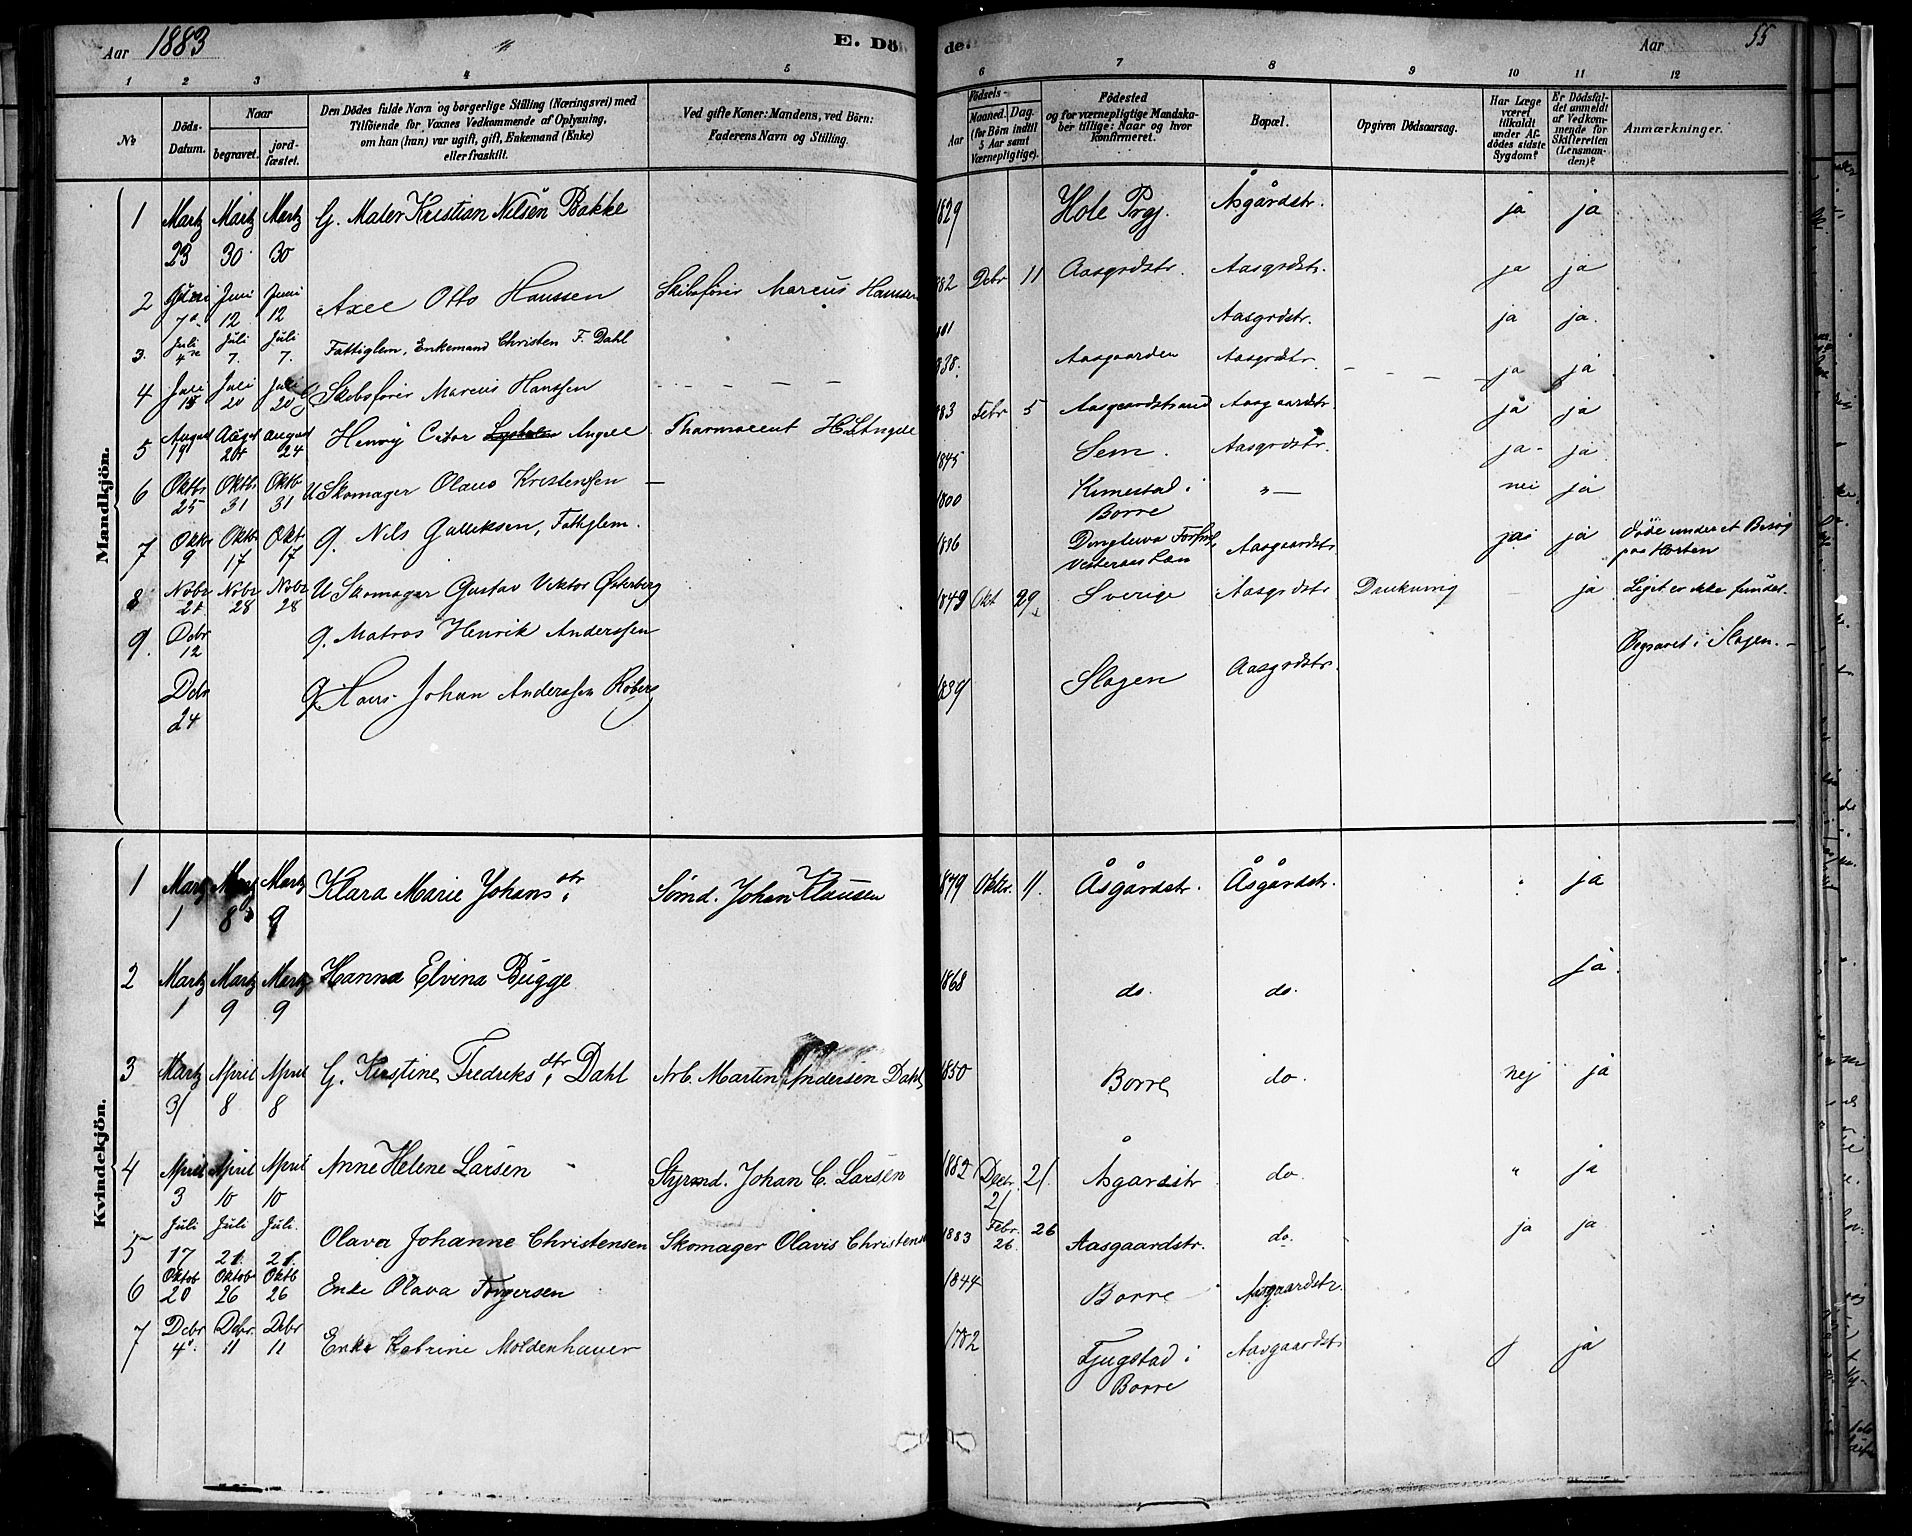 Aar 1883
E. Dö
de.
Aar
55
1 2 3 4 5 6 7 8 9 10 11 12
No
Döds-Datum.
Naar
begravet.
jord-fæstet.
Den Dödes fulde Navn og borgerlige Stilling (Næringsvei) med
Tilföiende for Voxnes Vedkommende af Oplysning,
om han (hun) var ugift, gift, Enkemand (Enke)
eller fraskilt.
Ved gifte Koner: Mandens, ved Börn:
Faderens Navn og Stilling.
Födsels-
Aar
Maaned. Dag.
(for Börn indtil
5 Aar samt
Værnepligtige).
Födested
og for værnepligtige Mandska-
ber tillige: Naar og hvor
konfirmeret.
Bopæl.
Opgiven Dödsaarsag.
Har Læge
været
tilkaldt
under Af-
dödes sidste
Sygdom?
Er Dödsfal-
det anmeldt
af Vedkom-
mende for
Skifteretten
(Lensman-
den)?
Anmærkninger.
Mandkjön.
1 Martz 23 Martz 30 Martz 30 G. Maler Kristian Nilsen Bakke 1829 Hole Prgj. Åsgårdstr. ja ja
2 Juni 7 Juni 12 Juni 12 Axel Otto Hanssen Skibsfører Marcus Hanssen 882 Debr 11 Aasgrdstr. Aasgrdstr. ja ja
3. Juli 4 Juli 7. Juli 7. Fattiglem, Enkemand Christen F. Dahl 801 Aasgrdstr. ja ja.
4 Juli 15 Juli 20 Juli 20 G Skibsfører Marcus Hanssen 838. Aasgaarden Aasgrdstr. ja ja
5 August 19 August 24 August 24 Henrij Angell Pharmaceut H Angell 883 Febr 5 Aasgaardstrand Aasgaardstr. ja ja
6 Oktbr 25 Oktbr 31 Oktbr 31 U Skomager Olaus Kristenssen 1845 Sem. Aasgrdstr. ja ja
7 Oktbr 9 Oktbr 17 Oktbr 17 g. Nils Gulleksen, Fattiglem. 1800 Kimestad i Borre " nei ja
8 Nobr 21 Nobr 28 Nobr 28 U Skomager Gustav Viktor Østerberg Aasgaardstr ja ja Døde under et Besøg paa Horten
9. Debr 12 g. Matros Henrik Anderssen 1849 Okt 29 Sverige Aasgrdstr Drukning ja Liget er ikke fundet.
Debr 24 g. Hans Johan Anderssen Røberg 1839 Slagen Aasgrdstr. Begravet i Slagen.
Kvindekjön.
1 Martz 1 Martz 8 Martz 9 Klara Marie Johansdtr. Sømd. Johan Klausen 1879 Oktbr. 11. Åsgårdstr. Åsgårdstr. ja
2 Martz 1 Martz 9 Martz 9 Hanna Elvina Bugge 1868 do. do. ja
3 Martz 31 April 8 April 8 G. Kirstine Fredriksdtr. Dahl Arb. Martin Andersen Dahl 1850 Borre do. nej ja
4 April 3 April 10 April 10 Anne Helene Larsen Styrmd. Johan C. Larsen 1882 Decbr. 21 21. Åsgårdstr do. " ja
5 Juli 17 Juli 21. Juli 21. Olava Johanne Christensen Skomager Olavis Christens 1883 Febr. 26. 26 Aasgaardstr. do. ja ja
6 Oktob 20 Oktob 26 Oktb 26 Enke Olava Torgersen 1844 Borre Aasgaardstr.
7 Debr 4 Debr. 11 Debr 11 Enke Katrine Moldenhauer Fjugstad i Borre Aasgaardstr ja